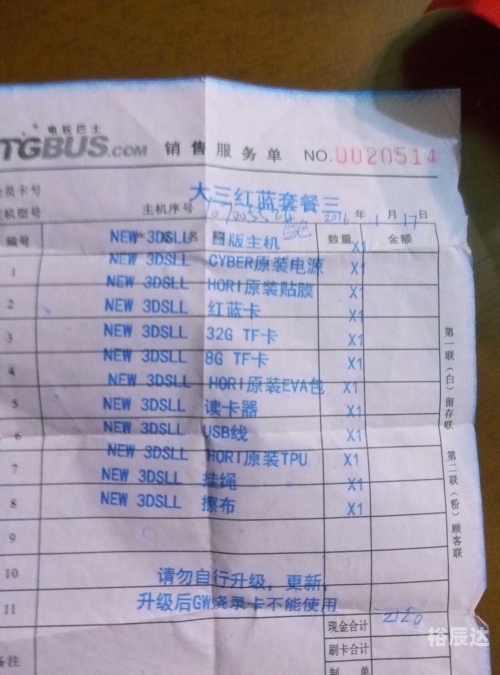 电玩巴士
TGBUS.COM 销售服务单 NO.0020514
会员卡号 大三红蓝套餐三
主机型号 主机序号 2016年1月17日
编号 名 数量 金额
NEW 3DSLL 日版主机 X1
1 NEW 3DSLL CYBER原装电源
NEW 3DSLL HORI原装贴膜 X1
2 NEW 3DSLL 红蓝卡 X1
3 NEW 3DSLL 32G TF卡 X1
NEW 3DSLL 8G TF卡 X1
4 NEW 3DSLL HORI原装EVA包 X1
5 NEW 3DSLL 读卡器 X1
6 NEW 3DSLL USB线 X1
7 NEW 3DSLL HORI原装TPU X1
8 NEW 3DSLL 挂绳 X1
NEW 3DSLL 擦布 X1
9
10 请勿自行升级，更新，
11 升级后GW烧录卡不能使用
现金合计 2120
刷卡合计
备注 制 单
第一联（白）留存联 第二联（粉）顾客联
裕辰达